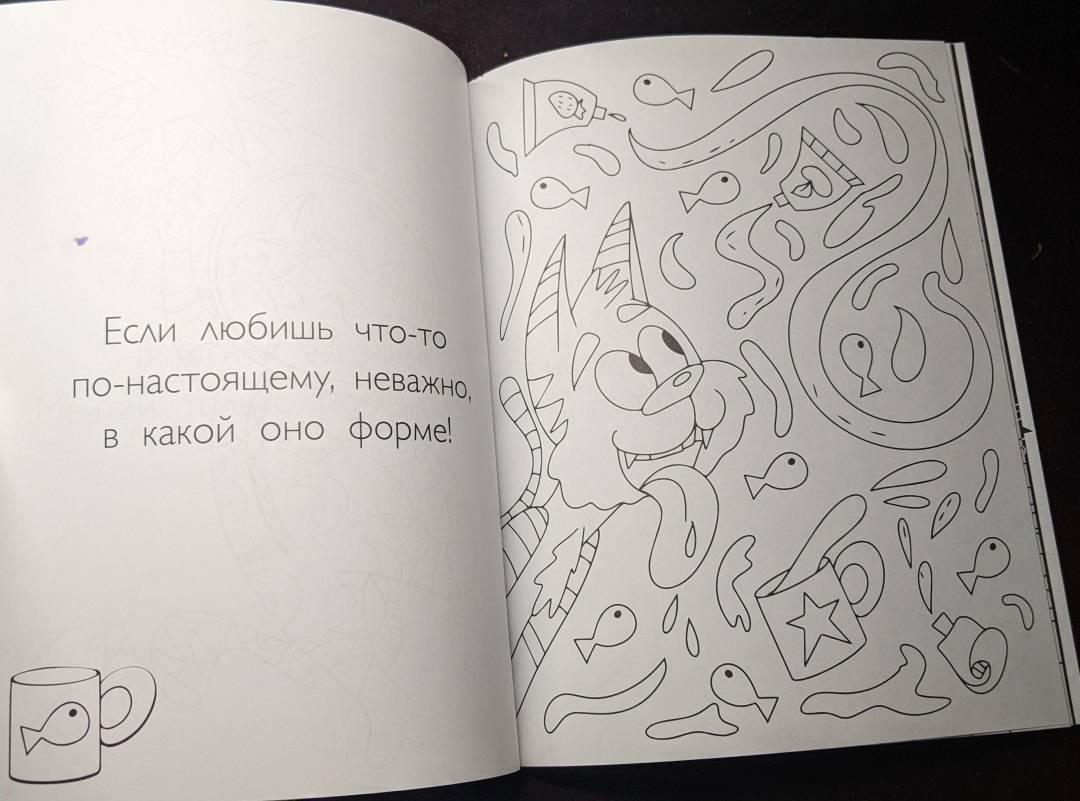 Если любишь что-то
по-настоящему, неважно,
в какой оно форме!